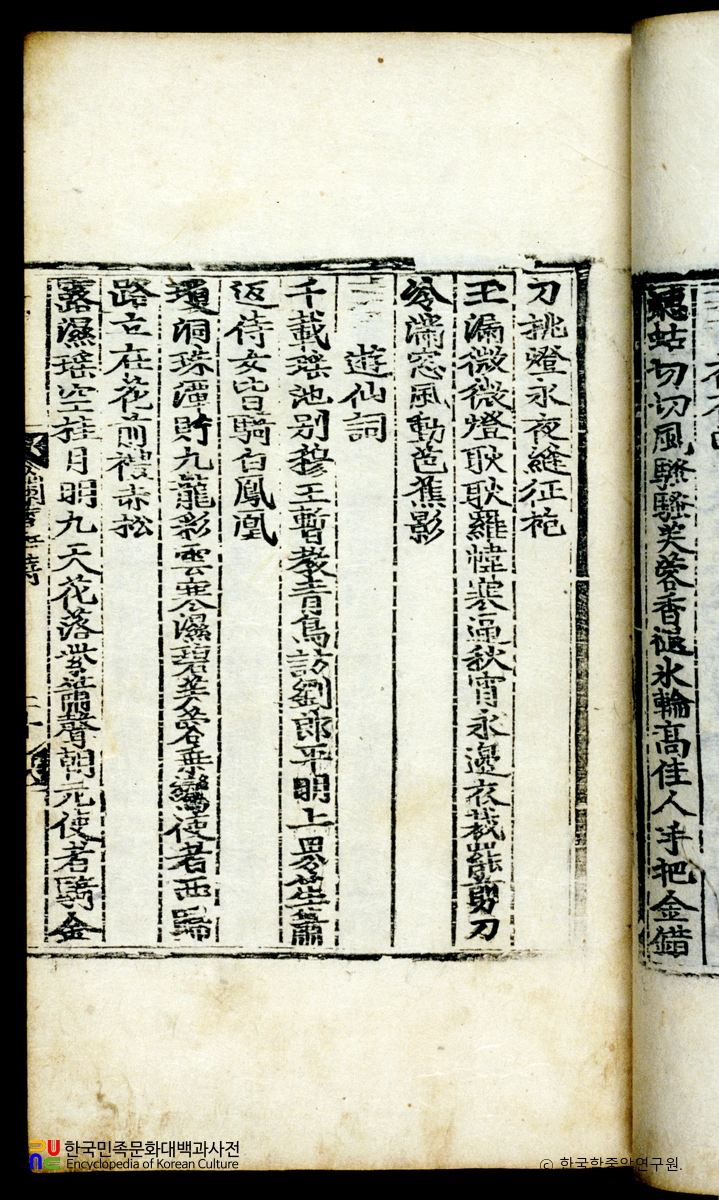 蟪蛄切切風騷騷芙蓉香褪氷輪高佳人手把金錯
刀挑燈永夜縫征袍
玉漏微微燈耿耿羅幃寒逼秋宵永邊衣裁罷剪刀
冷滿窓風動芭蕉影
遊仙詞
千載瑤池別穆王暫教靑鳥訪劉郎平明上界笙簫
返侍女皆騎白鳳凰
瓊洞珠潭貯九龍彩雲寒濕碧芙蓉乘鸞使者西歸
路立在花前禮赤松
露濕瑤空桂月明九天花落紫簫聲朝元使者騎金
한국민족문화대백과사전
Encyclopedia of Korean Culture
© 한국학중앙연구원.